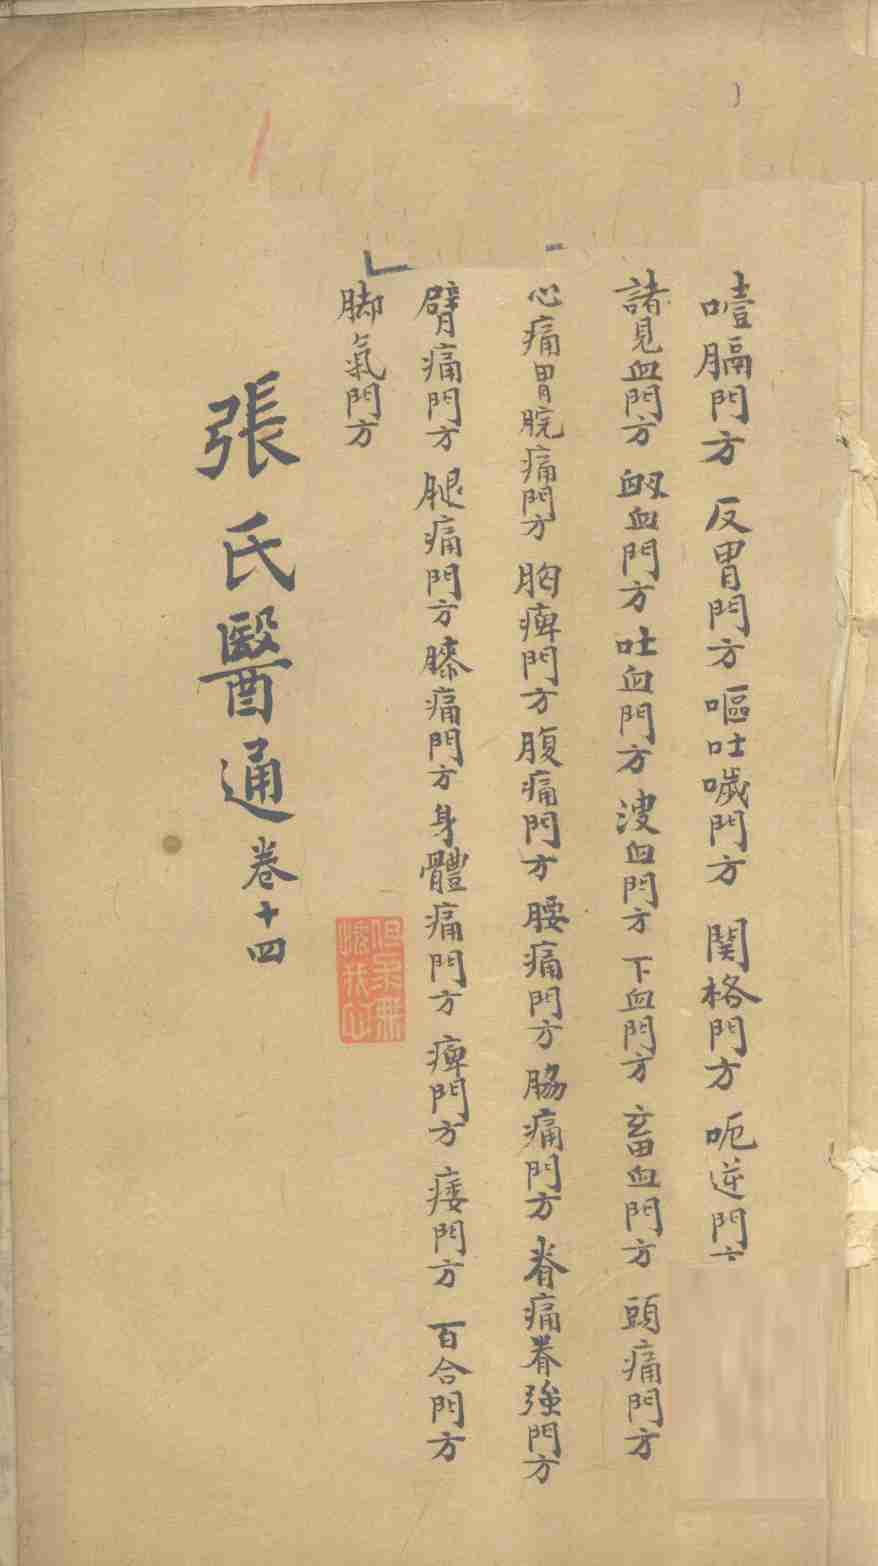 噎膈門方 反胃門方 嘔吐噦門方 関格門方 呃逆門
諸見血門方 衄血門方 吐血門方 溲血門方 下血門方 畜血門方 頭痛門方
心痛胃脘痛門方 胸痺門方 腹痛門方 腰痛門方 脇痛門方 脊痛脊強門方
臂痛門方 腿痛門方 膝痛門方 身體痛門方 痺門方 痿門方 百合門方
脚氣門方
張氏醫通卷十四